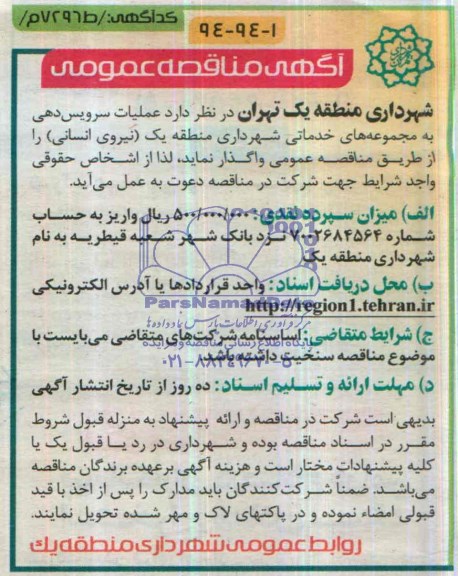 کدآگهی: /ط۷۲۹۶م/
۹۴-۹۴-۱
آگهی مناقصه عمومی
شهرداری منطقه یک تهران در نظر دارد عملیات سرویس‌دهی
به مجموعه‌های خدماتی شهرداری منطقه یک (نیروی انسانی) را
از طریق مناقصه عمومی واگذار نماید، لذا از اشخاص حقوقی
واجد شرایط جهت شرکت در مناقصه دعوت به عمل می‌آید.
الف) میزان سپرده نقدی: ۵۰۰/۰۰۰/۰۰۰ ریال واریز به حساب
شماره ۷۰۰۲۶۸۴۵۶۴ نزد بانک شهر شعبه قیطریه به نام
شهرداری منطقه یک
ب) محل دریافت اسناد: واحد قراردادها یا آدرس الکترونیکی
http://region1.tehran.ir
ParsNamadData
ج) شرایط متقاضی: اساسنامه شرکت‌های متقاضی می‌بایست با
پایگاه اطلاع رسانی مناقصه و مزایده
موضوع مناقصه سنخیت داشته باشد.
د) مهلت ارائه و تسلیم اسناد: ده روز از تاریخ انتشار آگهی
بدیهی است شرکت در مناقصه و ارائه پیشنهاد به منزله قبول شروط
مقرر در اسناد مناقصه بوده و شهرداری در رد یا قبول یک یا
کلیه پیشنهادات مختار است و هزینه آگهی برعهده برندگان مناقصه
می‌باشد. ضمناً شرکت‌کنندگان باید مدارک را پس از اخذ با قید
قبولی امضاء نموده و در پاکتهای لاک و مهر شده تحویل نمایند.
روابط عمومی شهرداری منطقه یک